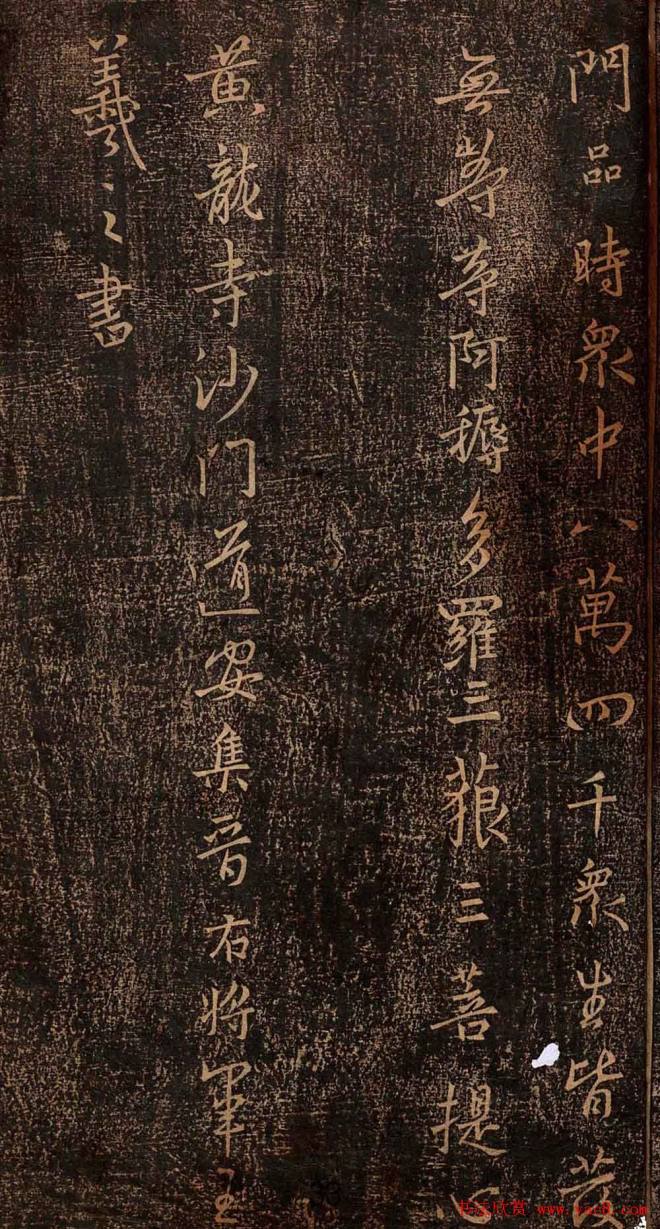 門品時衆中八萬四千衆生皆發
無等等阿耨多羅三藐三菩提心
黃龍寺沙門道安集晉右將軍王
羲之書
书法欣赏 www.yac8.com